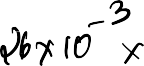 26×10⁻³ ×